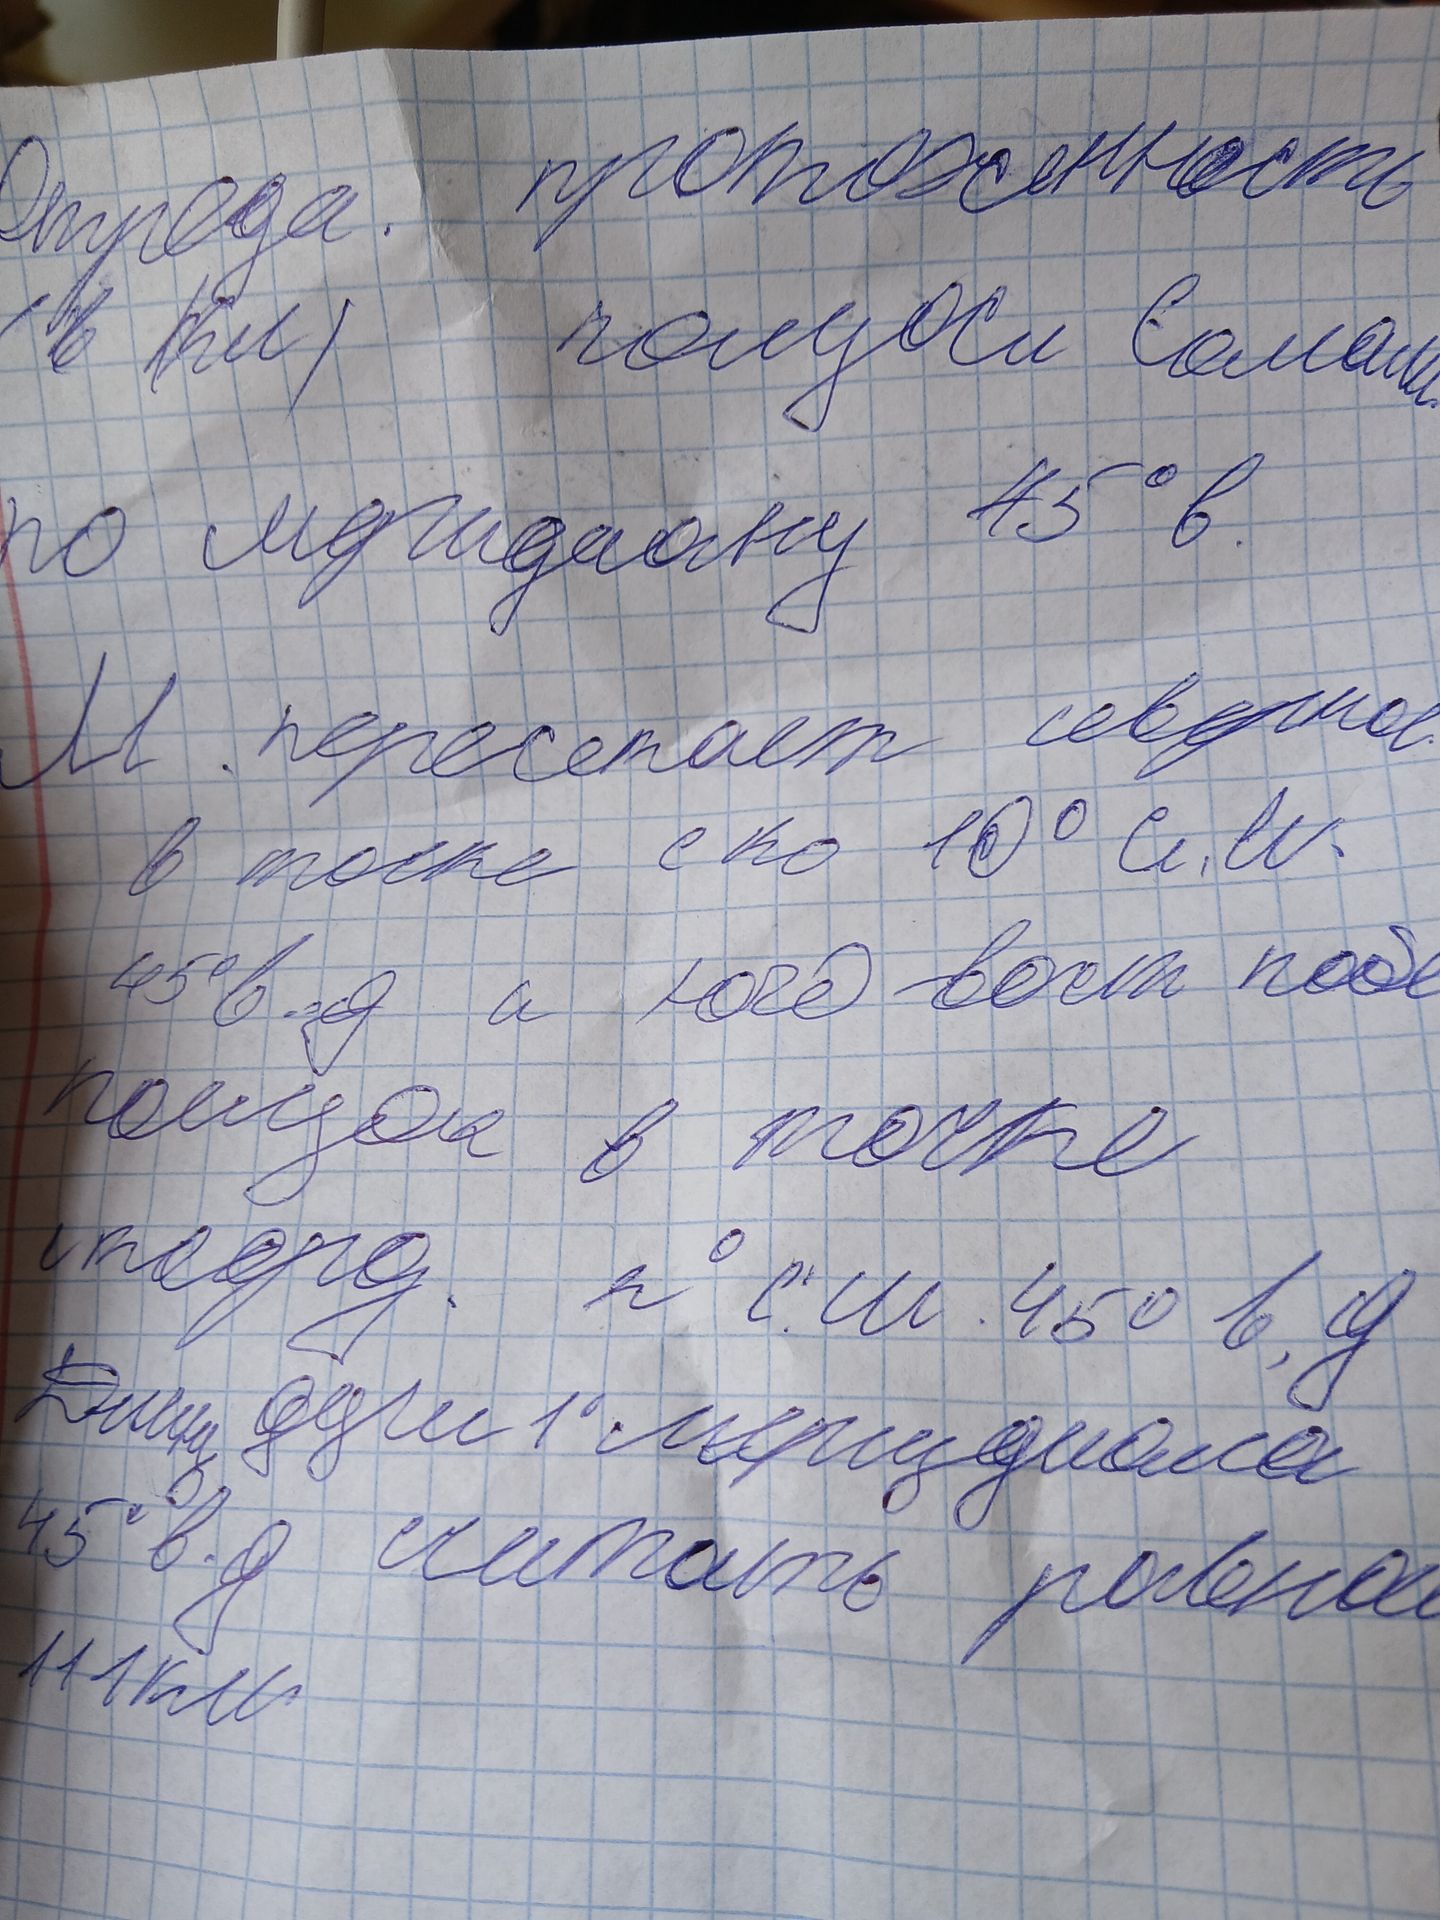 Опреда. протоженность
(в км) полуосл Сомали
по меридиану 45° в.
М. пересекает северное
в точке с ко 10° с.ш.
45° в.д и юго-вост побе
полуос в точке
n° с.ш. 45° в.д
Длину дуги 1° меридиана
45° в.д считать равной
111км